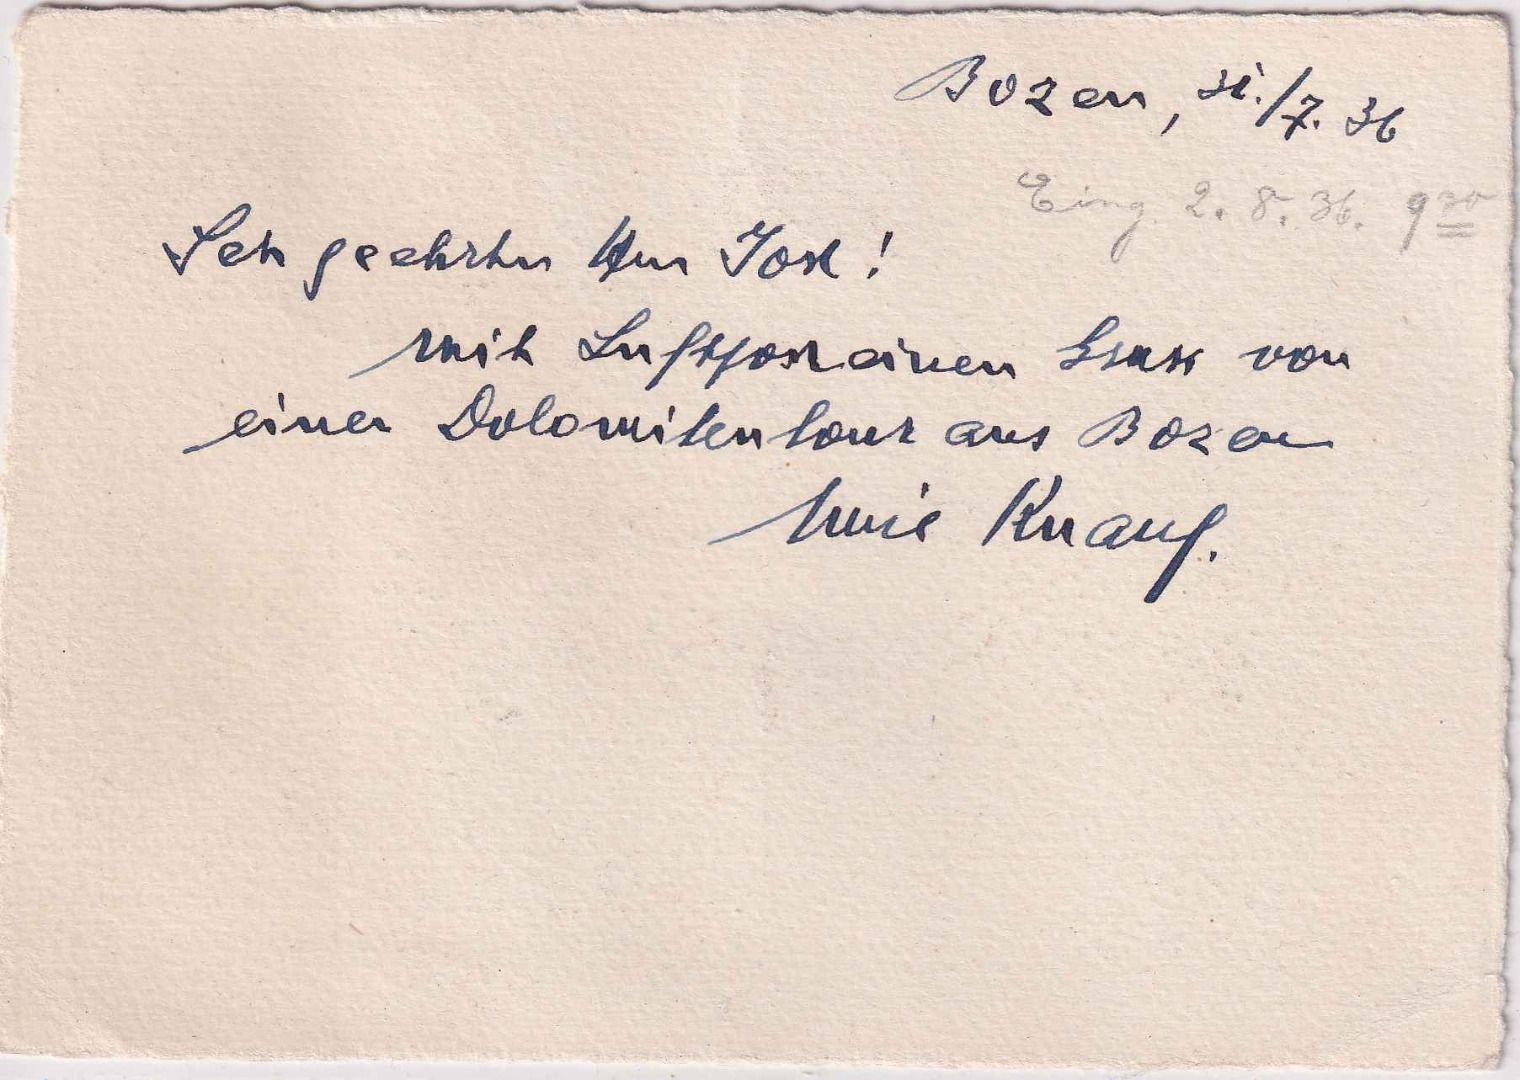 Bozen, 31./7. 36
Eing. 2. 8. 36. 9 30
Sehr geehrter Herr Jost!
mit Luftpost einen Gruss von
einer Dolomitentour aus Bozen
Knauf.